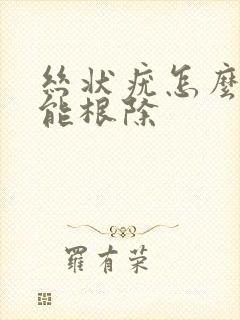 絲狀疣怎麼
能根除
羅有荣